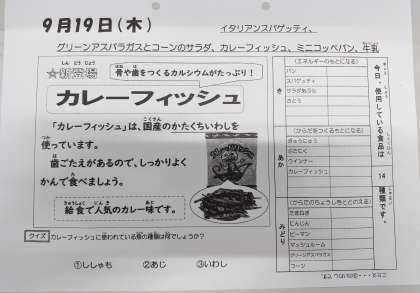 9月19日(木)
イタリアンスパゲッティ、
グリーンアスパラガスとコーンのサラダ、カレーフィッシュ、ミニコッペパン、牛乳
しん とうじょう
☆新登場
ほね は
骨や歯をつくるカルシウムがたっぷり!
カレーフィッシュ
こくさん
「カレーフィッシュ」は、国産のかたくちいわしを
つか
使っています。
は
歯ごたえがあるので、しっかりよく
た
かんで食べましょう。
きゅうしょく にんき あじ
給食で人気のカレー味です。
クイズ カレーフィッシュに使われている魚の種類は何でしょうか?
①ししゃも ②あじ ③いわし
き
(エネルギーのもとになる)
パン
スパゲッティ
サラダあぶら
さとう
あか
(からだをつくるもとになる)
ぎゅうにゅう
ぶたにく
ウインナー
カレーフィッシュ
みどり
(からだのちょうしをととのえる)
たまねぎ
にんじん
ピーマン
マッシュルーム
グリーンアスパラガス
コーン
今日、使用している食品は
14
種類です。